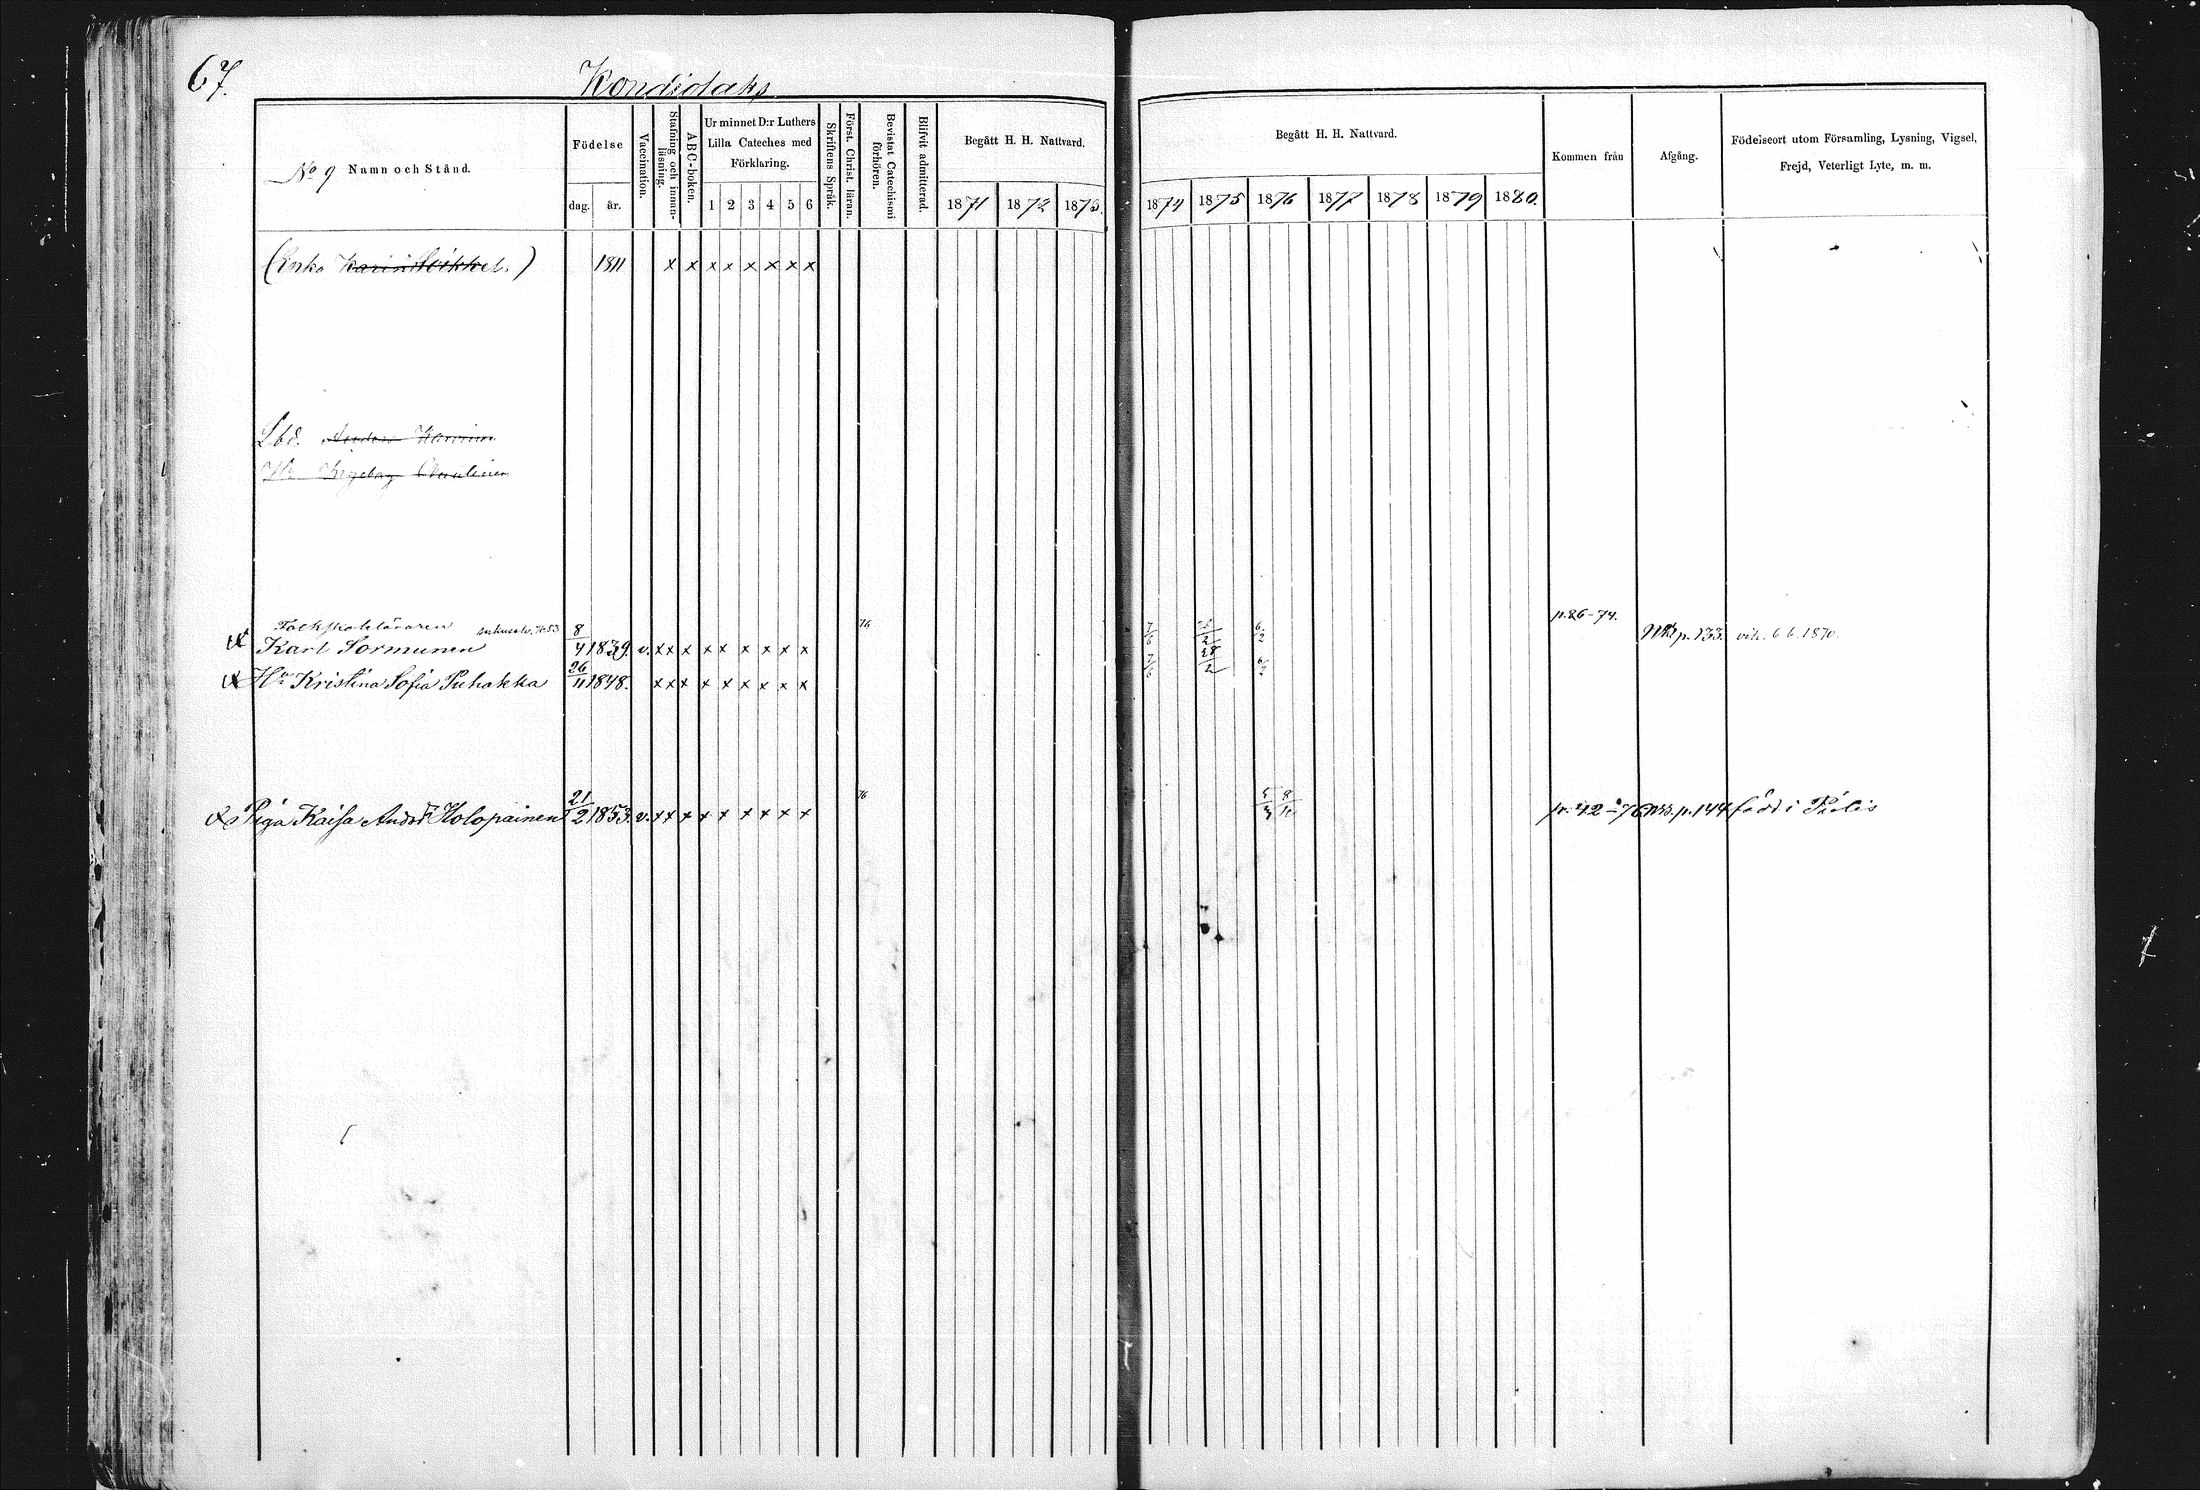 67.
No 9 Namn och Stånd.
Födelse
dag. år.
Vaccination.
Stafning och innan-
läsning.
ABC-boken.
Ur minnet D:r Luthers
Lilla Cateches med
Förklaring.
1 2 3 4 5 6
Skriftens Språk.
Först. Christ. läran.
Bevistat Catechismi
förhören.
Blifvit admitterad.
Begått H. H. Nattvard.
1871 1872 1873.
Begått H. H. Nattvard.
1874 1875 1876 1877 1878 1879 1880.
Kommen från
Afgång.
Födelseort utom Församling, Lysning, Vigsel,
Frejd, Veterligt Lyte, m. m.
(Enka Karin ) 1811 x x x x x x x x
Lbd.
Folkskoleläraren p. 86-74.
Karl Sormunen 8/4 1839. v. x x x x x x x x x 76 7/6 6/2 p. 133 vih. 6 6. 1870.
Hu Kristina Sofia Puhakka 26/11 1848. x x x x x x x x x 7/6 28/2 6/2
Piga Kaisa Andr Holopainen 21/2 1853. v. x x x x x x x x x 76 p. 42-76 p. 144 född i Pielis